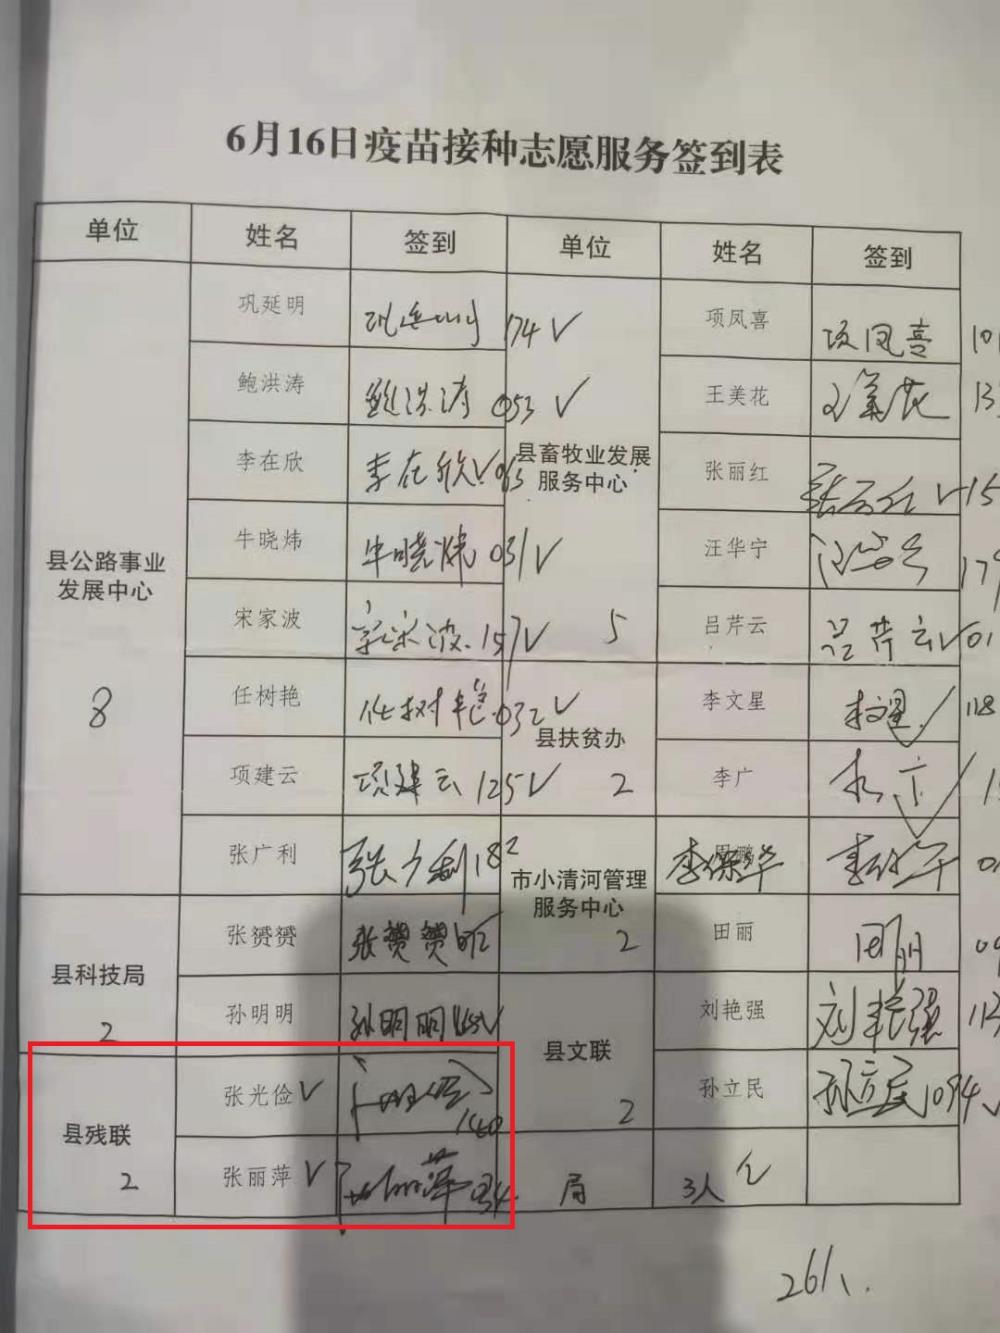 6月16日疫苗接种志愿服务签到表
单位 姓名 签到 单位 姓名 签到
县公路事业
发展中心
8
巩延明 巩延明 174 V
鲍洪涛 鲍洪涛 053 V
李在欣 李在欣 V 063
牛晓炜 牛晓炜 031 V
宋家波 宋家波 157 V
任树艳 任树艳 032 V
项建云 项建云 125 V
张广利 张广利 182
县科技局
2
张赟赟 张赟赟
孙明明 孙明明
县残联
2
张光俭 V 140
张丽萍 V 张丽萍 034
县畜牧业发展
服务中心
5
项凤喜 项凤喜 101
王美花 王美花 13
张丽红 张丽红 V 15
汪华宁 汪华宁 179
吕芹云 吕芹云 V 01
县扶贫办
2
李文星 李文星 118
李广 李广 1
市小清河管理
服务中心
2
李保华 李保华 0
田丽 田丽 09
县文联
2
刘艳强 刘艳强 112
孙立民 孙立民 1094
局 3人
261